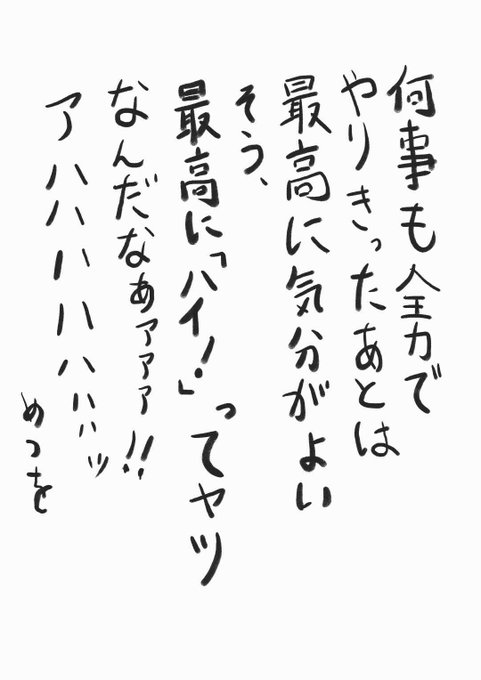 何事も全力で
やりきったあとは
最高に気分がよい
そう、
最高に「ハイ!」ってヤツ
なんだなあァァァ!!
アハハハハハハハッ
めつを